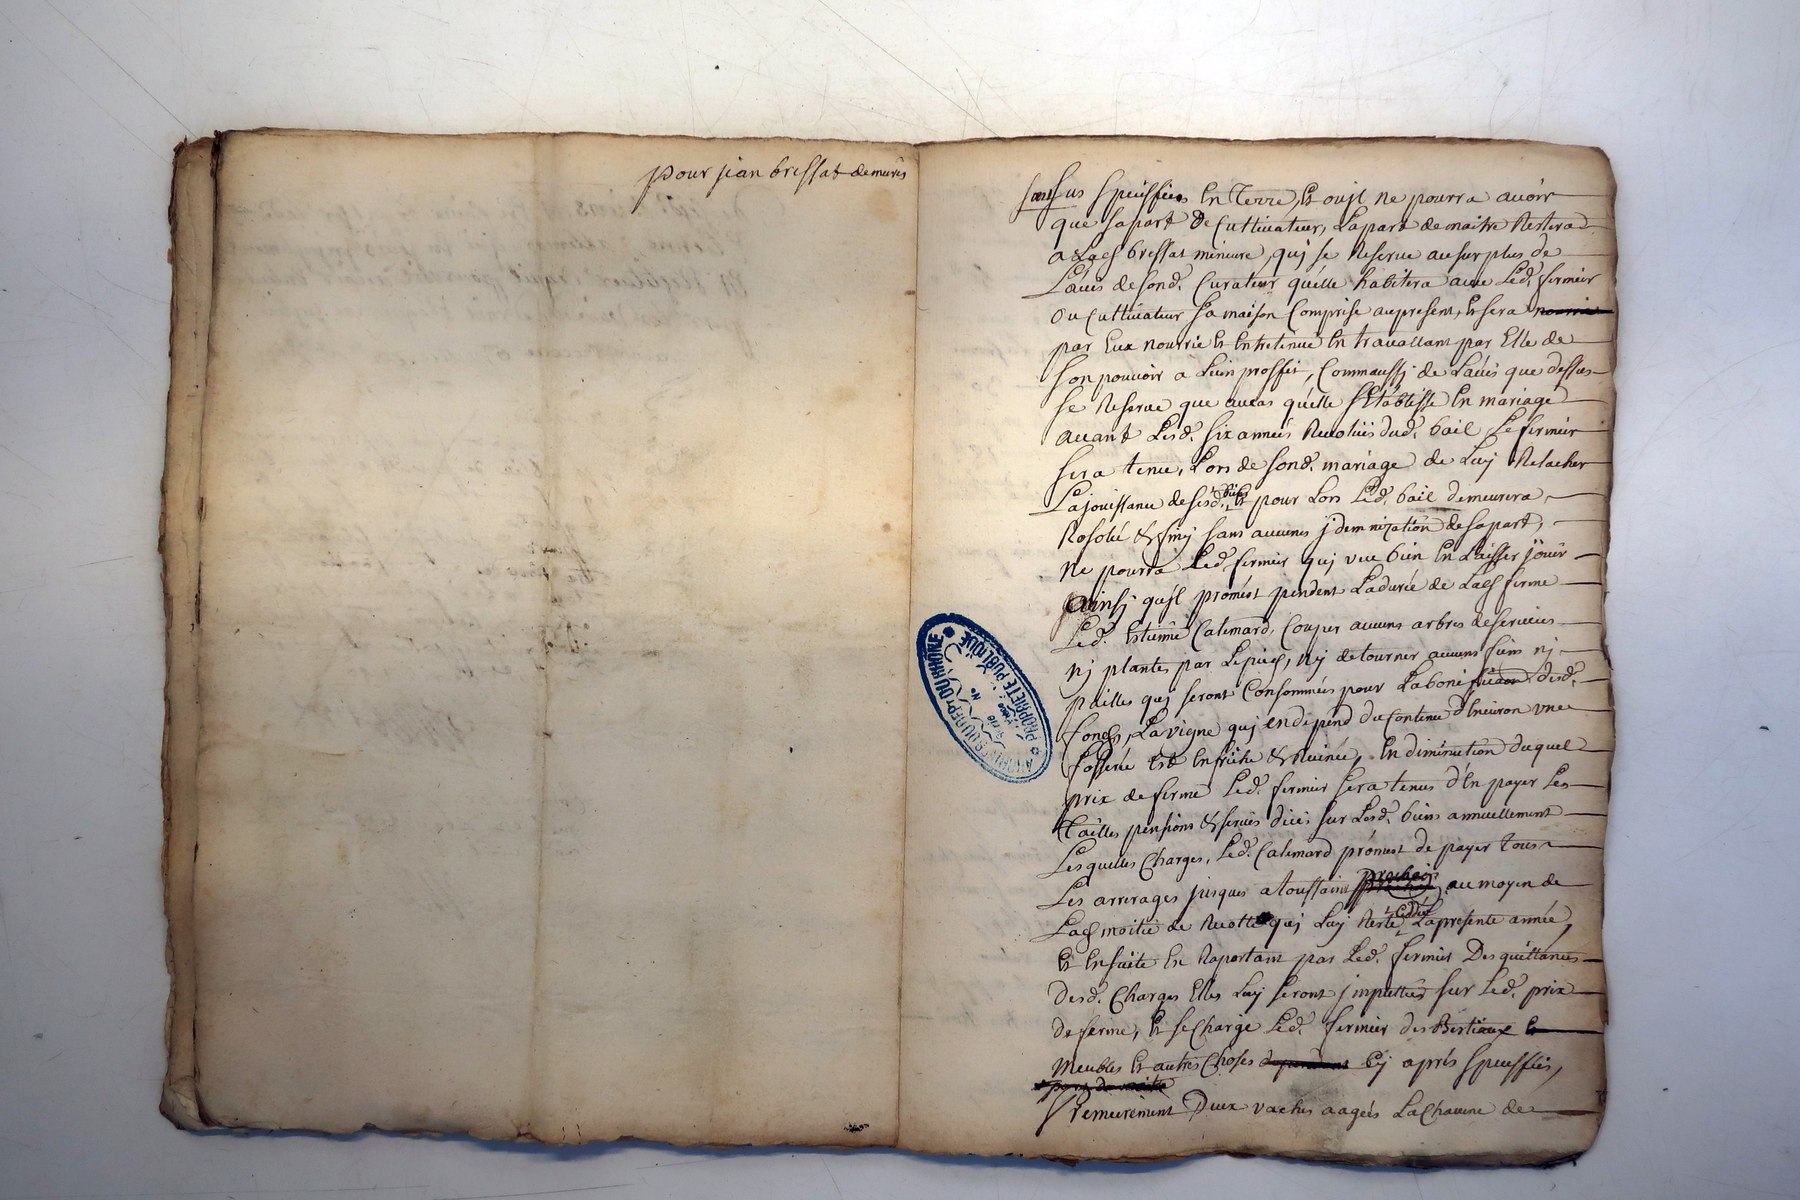 pour jean bressat demurs
sus speciffiées En Terre, Et ouil ne pourra avoir
que sapart De Cultivateur, Lapart de maitre Restera
a Lad bressat mineure, quj se Reserve ausurplus de
L'avis de sond. Curateur qu'elle habitera avec Led. fermier
Ou Cultivateur sa maison Comprise aupresent, Et sera nourrie
par Eux nourrie Et Entretenue En travallant par Elle de
son pouvoir a Leur proffit, Commaussj de L'avis que dessus
se Reserve que aucas qu'elle s'Etablisse En mariage
avant Lesd. six années Revolües dud. bail, Le fermier
sera tenu, Lors de sond. mariage de Luj Relacher
La jouissance de sesd. biens Et pour Lors Led. bail demeurera
Resolu & finj sans aucunes jdemnization desapart,
ne pourra Led. fermier quj veut bien En Laisser joüir
Ainsj qu'jl promést pendent Ladurée de Lad ferme
Led. Estienne Calemard, Couper aucuns arbres deservices
nj plantés par Lepied, nj detourner aucuns fiens nj
pailles quj seront Consommées pour Laboné desd.
fonds, La vigne quj en depend du Contenu d'Environ une
fosserée Est En friche & Ruinée, En diminution duquel
prix de ferme Led. fermier sera tenus d'En payer Les
Tailles pensions & servis deües sur Lesd. biens annuellement
Lesquelles Charges, Led. Calemard promest de payer tous
Les arrerages jusques a toussaint prochain au moyen de
Lad moitié de Recolte quj Luj Reste cédée Lapresente année,
Et Ensuite En Raportant par Led. fermier Des quittances
desd. Charges Elles Luj seront jmputtées sur Led. prix
de ferme, Et se Charge Led. fermier des Bestiaux Et
Meubles Et autres Choses Cj aprés speciffiés,
Premierement Deux vaches aagées La Chacune de
ARCHIVES DU DEPT DU RHONE
PROPRIETE PUBLIQUE